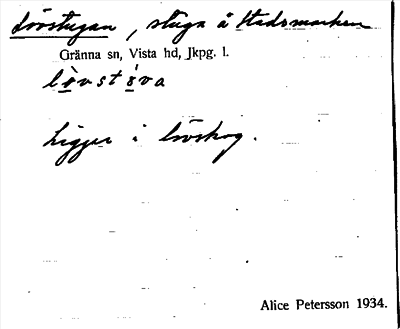 Lövstugan, stuga å Stadsmarken
Gränna sn, Vista hd, Jkpg. l.
lövstova
Ligger i lövskog.
Alice Petersson 1934.